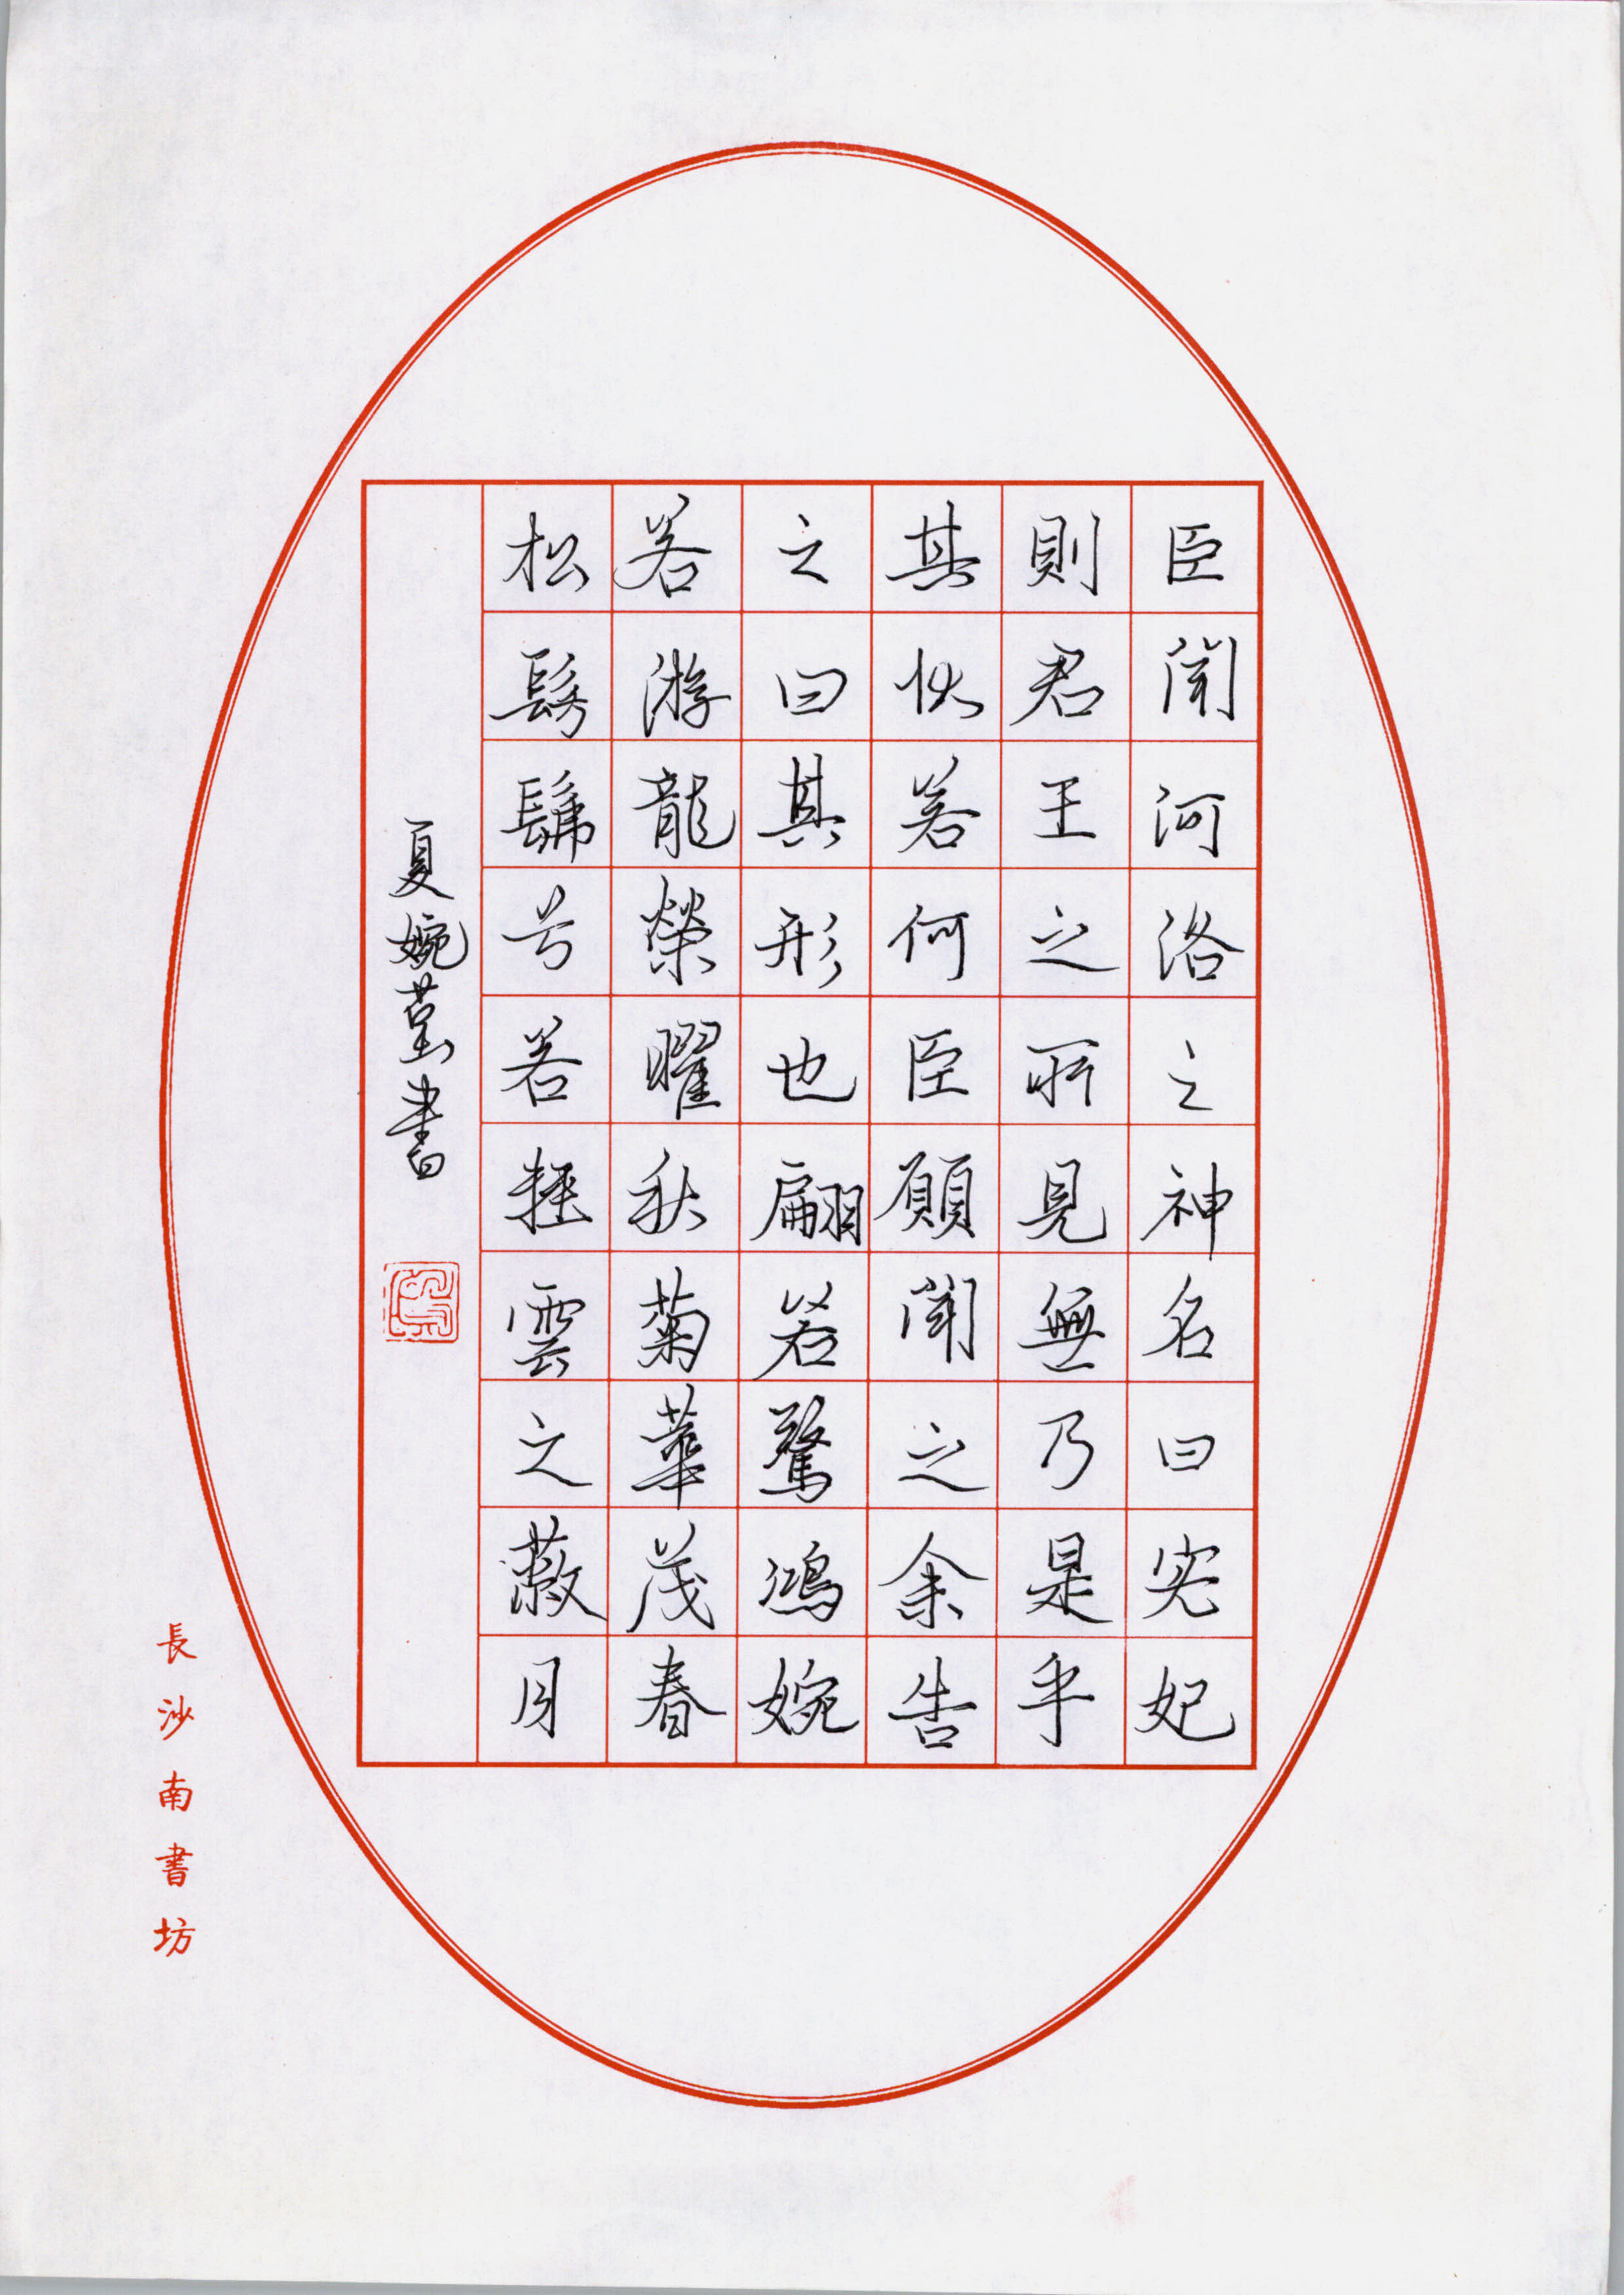 臣聞河洛之神名曰宓妃
則君王之所見無乃是乎
其狀若何臣願聞之余告
之曰其形也翩若驚鴻婉
若游龍榮曜秋菊華茂春
松髣髴兮若輕雲之蔽月
夏婉書
長沙南書坊